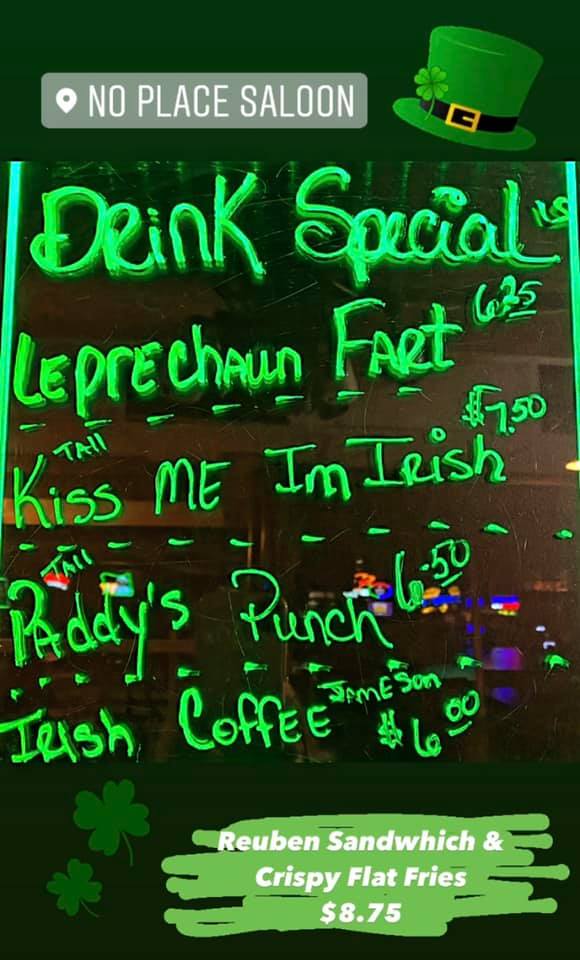 NO PLACE SALOON
Drink Special
Leprechaun Fart 6.25
Tall $7.50
Kiss Me Im Irish
Tall
Paddy's Punch 6.50
Irish Coffee Jameson $6.00
Reuben Sandwhich &
Crispy Flat Fries
$8.75